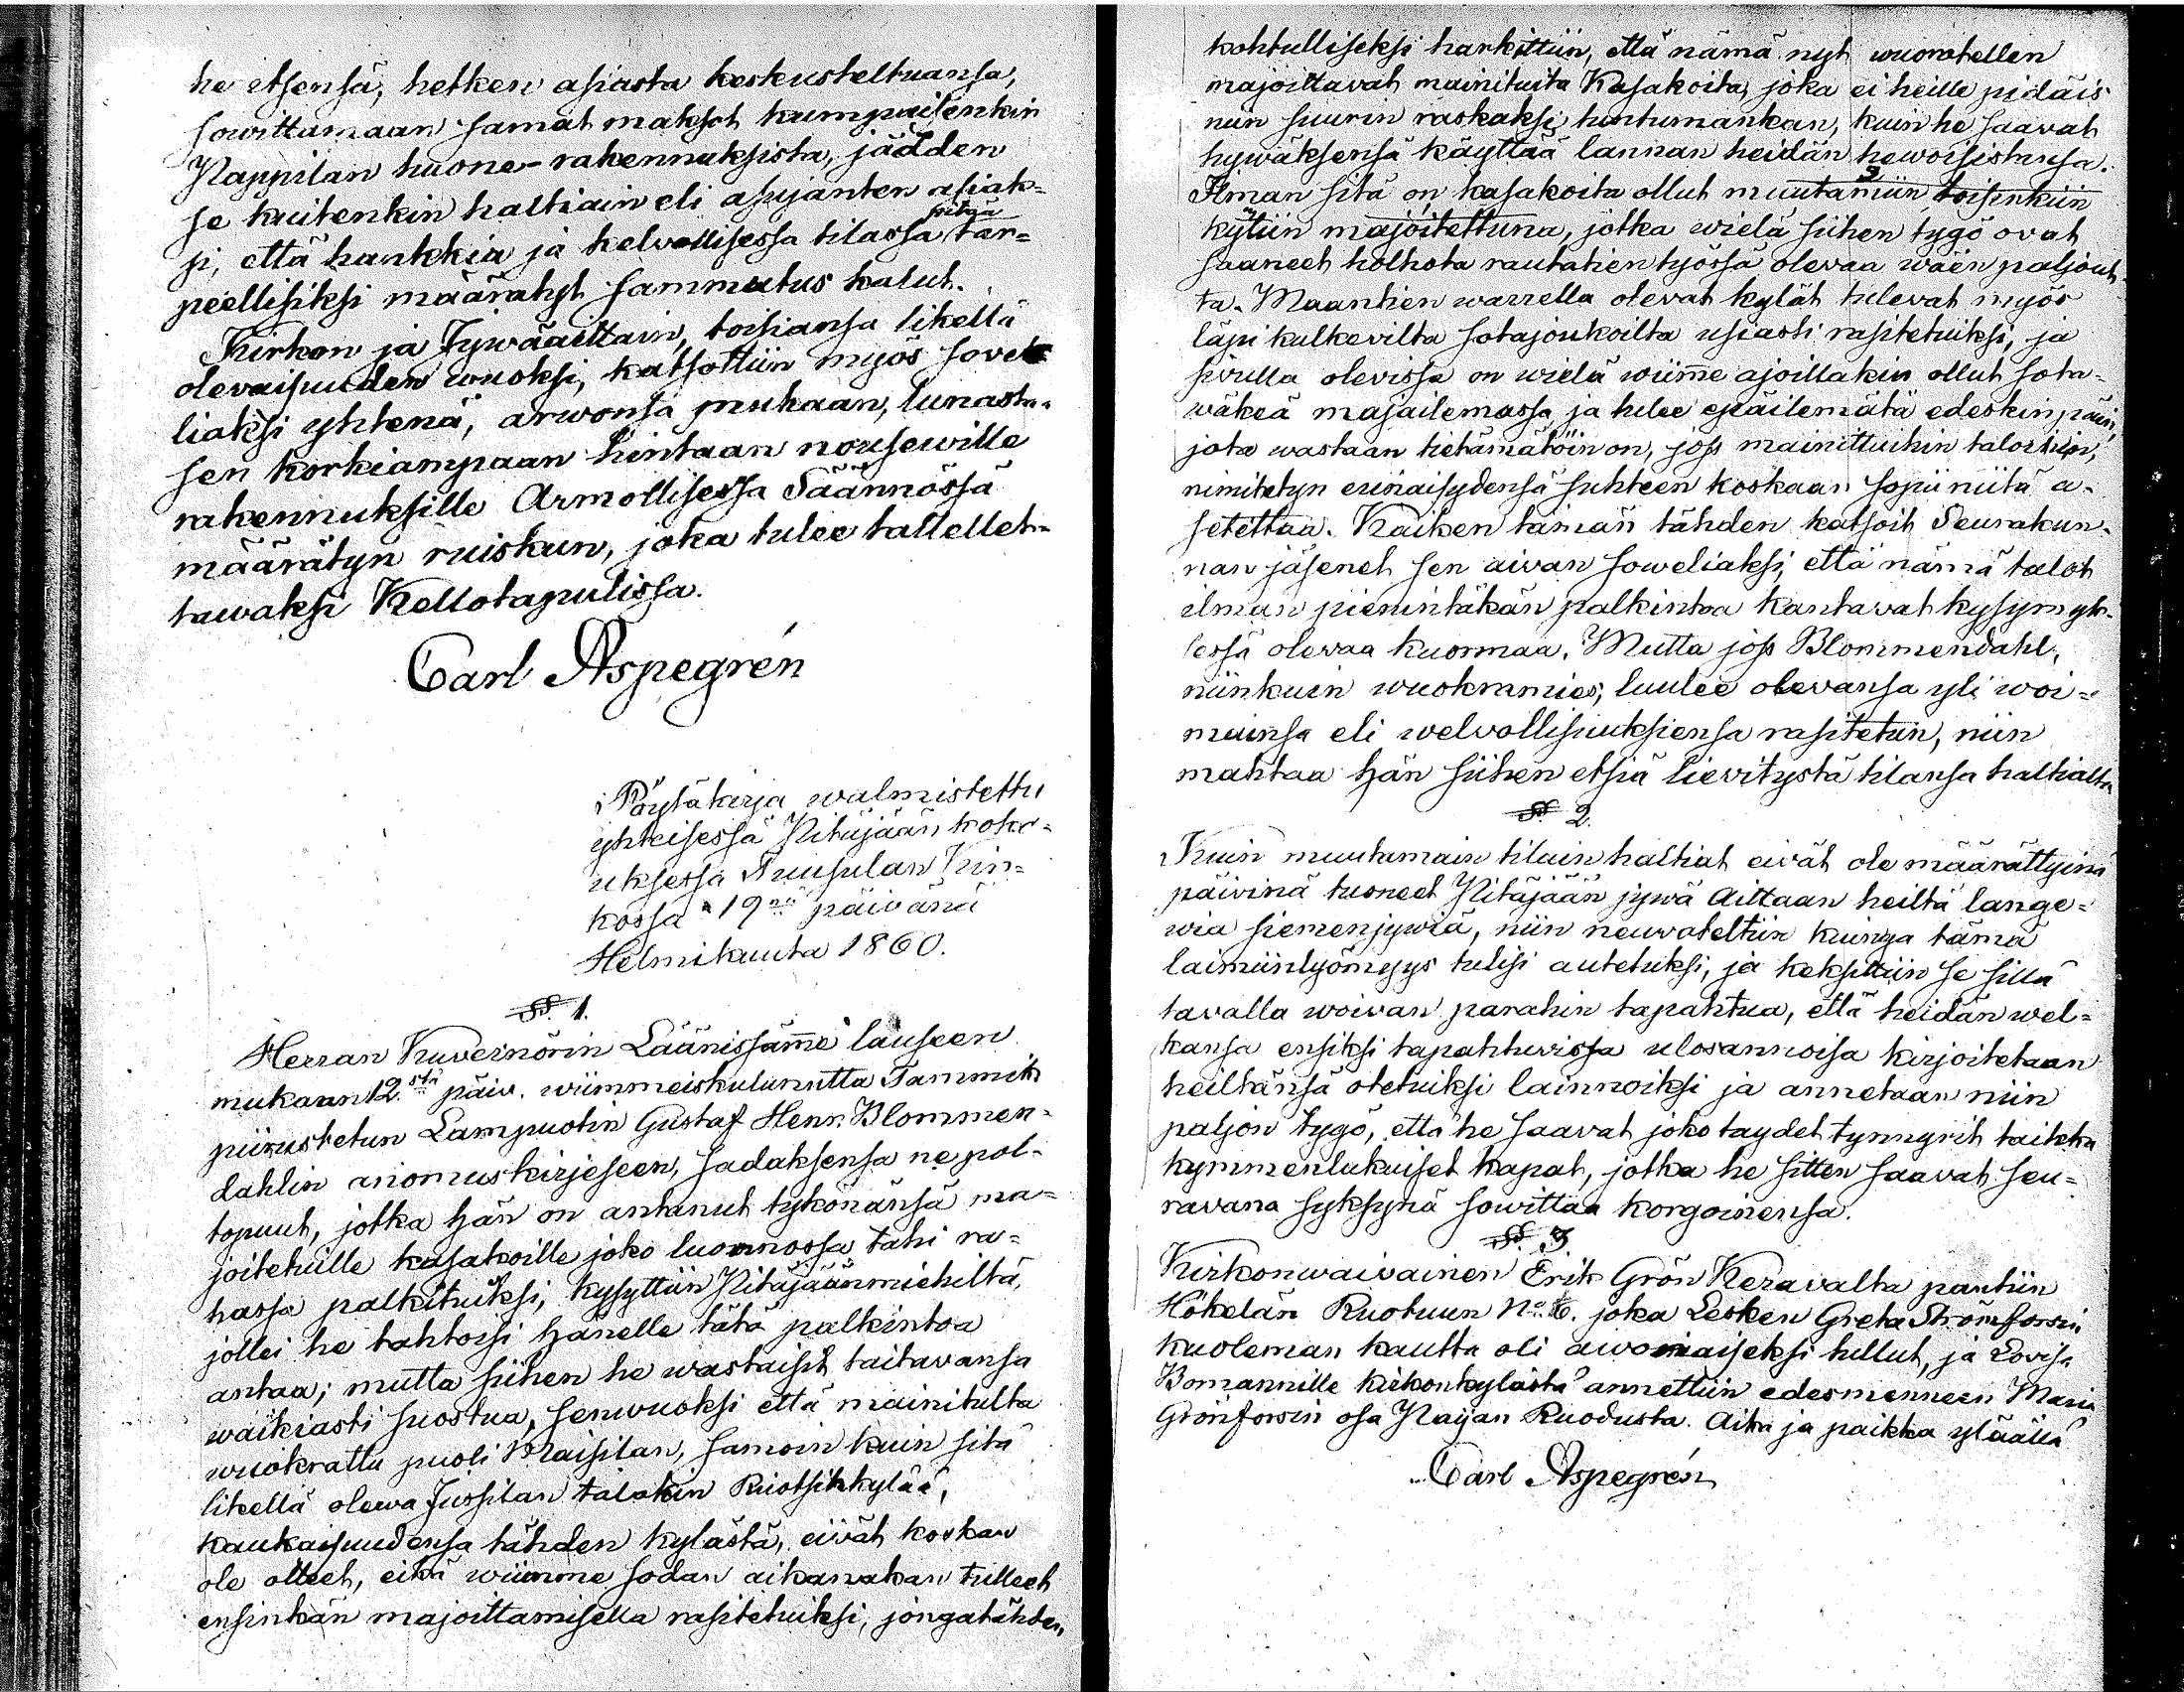 he itsensä, hetken asiasta keskusteltuansa,
sowittamaan samat maksot kumpaisenkin
Pappilan huone-rakennuksista, jääden
se kuitenkin haltiain eli asujanten asiak=
si, että hankkia ja kelvollisessa tilassa pitää tar=
peellisiksi määrätyt sammutus kalut.
Kirkon ja Jywäaittain, toisiansa likellä
olevaisuuden wuoksi, katsottiin myös sove
liaksi yhtenä, arwonsa mukaan, lunasta=
sen korkiampaan hintaan nousewille
rakennuksille Armollisessa Säännössä
määrätyn ruiskun, joka tulee tallellet=
tawaksi Kellotapulissa.
Carl Aspegrén
Pöytäkirja walmistettu
yhteisessä Pitäjään koko=
uksessa Tuusulan Kir=
kossa 19nä päivänä
Helmikuuta 1860.
§§. 1.
Herran Kuvernörin Läänissämme lauseen
mukaan 12.stä päiv. wiimmeiskulunutta Tammik
piirustetun Lampuotin Gustaf Henr. Blommen=
dahlin anomuskirjeseen, sadaksensa ne pol=
topuut, jotka hän on antanut tykönänsä ma=
joitetuille kasakoille joko luonnossa tahi ra=
hassa palkituiksi, kysyttiin Pitäjäänmiehiltä,
jollei he tahtoisi hänelle tätä palkintoa
antaa; mutta siihen he wastaisit taitavansa
waikiasti suostua, senwuoksi että mainitulta
wuokrattu puoli Maisilan, samoin kuin sitä
likellä olewa Jussilan talokin Ruotsinkylää,
kaukaisuudensa tähden kylästä, eiwät koskan
ole olleet, eikä wiimme sodan aikanakan tulleet
ensinkän majoittamisella rasitetuiksi, jongatähden
kohtulliseksi harkittiin, että nämä nyt wuorotellen
majoittavat mainituita Kasakoita, joka ei heille pidäis
niin suurin raskaksi tuntumankan, kuin he saavat
hywäksensä käyttää lannan heidän hewoisistansa.
Ilman sitä on kasakoita ollut muutamiin toisinkiin
kyliin majoitettuna, jotka wielä siihen tygö ovat
saaneet holhota rautatien työssä olevaa wäen paljout
ta. Maantien warrella olevat kylät tulevat myös
läpi kulkevilta sotajoukoilta usiasti rasitetuiksi, ja
sivulla olevissa on wielä wiimme ajoillakin ollut sota=
wäkeä majailemassa, ja tulee epäilemätä edeskinpäin,
jota wastaan tietämätöin on, jos mainittuihin taloihin,
nimitetyn erinaisydensä suhteen koskaan sopii niitä a=
setettaa. Kaiken tämän tähden katsoit Seurakun=
nan jäsenet sen aivan soweliaksi, että nämä talot
ilman pienintäkän palkintoa kantavat kysymyk=
sessä olevaa kuormaa. Mutta jos Blommendahl,
niinkuin wuokramies, luulee olevansa yli woi=
mainsa eli welvollisuuksiensa rasitetun, niin
mahtaa hän siihen etsiä lievitystä tilansa haltialta
§§ 2.
Kuin muutamain tilain haltiat eivät ole määrättyinä
päivinä tuoneet Pitäjään jywä Aittaan heiltä lange=
wia siemenjywiä, niin neuvoteltiin kuinga tämä
laiminlyömysys tulisi autetuksi, ja keksittiin se sillä
tavalla woivan parahin tapahtua, että heidän wel=
kansa ensiksi tapahtuvissa ulosannoisa kirjoitetaan
heiltänsä otetuiksi lainnoiksi ja annetaan niin
paljon tygö, että he saavat joko taydet tynnyrit taikka
kymmenlukuiset kapat, jotka he sitten saavat seu=
ravana syksynä sowittaa korgoinensa.
§§. 3
Kirkonwaivainen Erik Grön Keravalta pantiin
Hökelän Ruotuun No. 6. joka Lesken Greta Strömforsin
kuoleman kautta oli awonaiseksi tullut, ja Lovisa
Bomannille kirkonkylästä annettiin edesmenneen Maria
Grönforsin osa Paijan Ruodusta. Aika ja paikka ylääliä
Carl Aspegrén